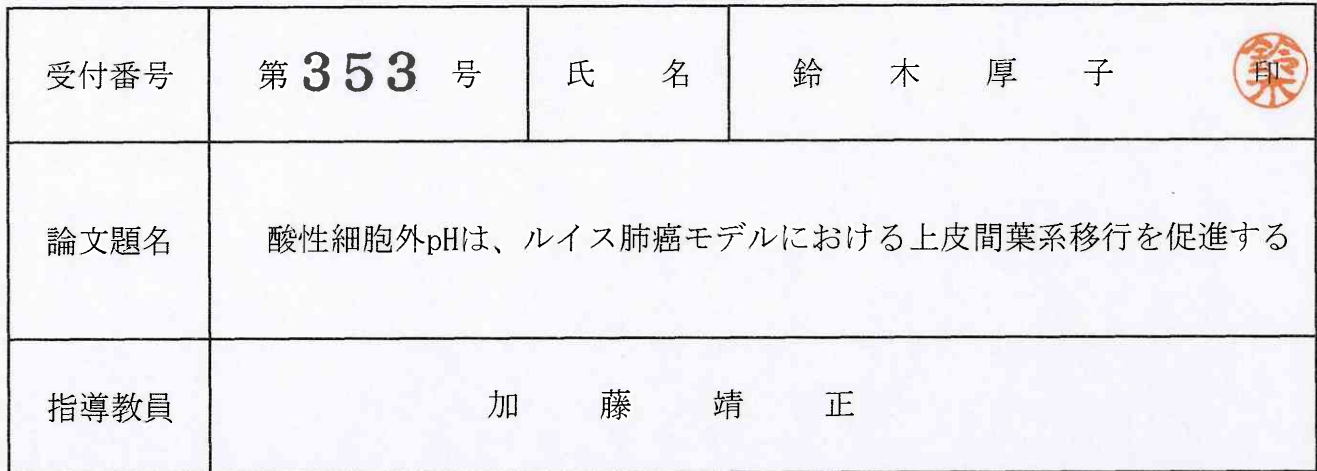 受付番号 第353号 氏名 鈴木厚子 印 鈴木
論文題名 酸性細胞外pHは、ルイス肺癌モデルにおける上皮間葉系移行を促進する
指導教員 加藤靖正